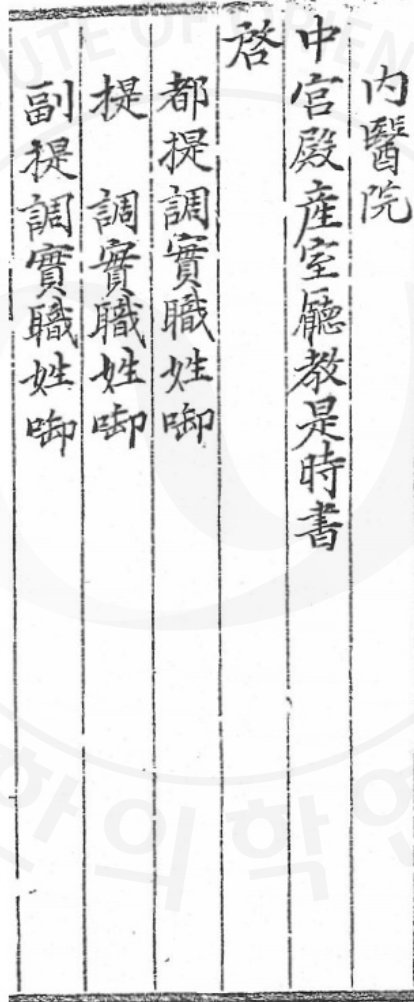 内醫院
中宮殿産室廳教是時書
啓
都提調實職姓啣
提 調實職姓啣
副提調實職姓啣